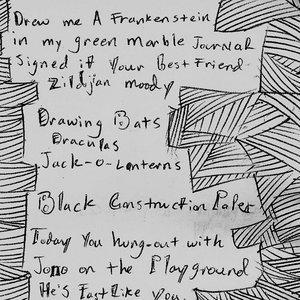 Draw me A Frankenstein
in my green marble Journal
Signed it Your Best Friend
Zildjian moody
Drawing Bats
Draculas
Jack-O-Lanterns
Black Construction Paper
Today You hung-out with
Jono on the Playground
He's Fast Like You.